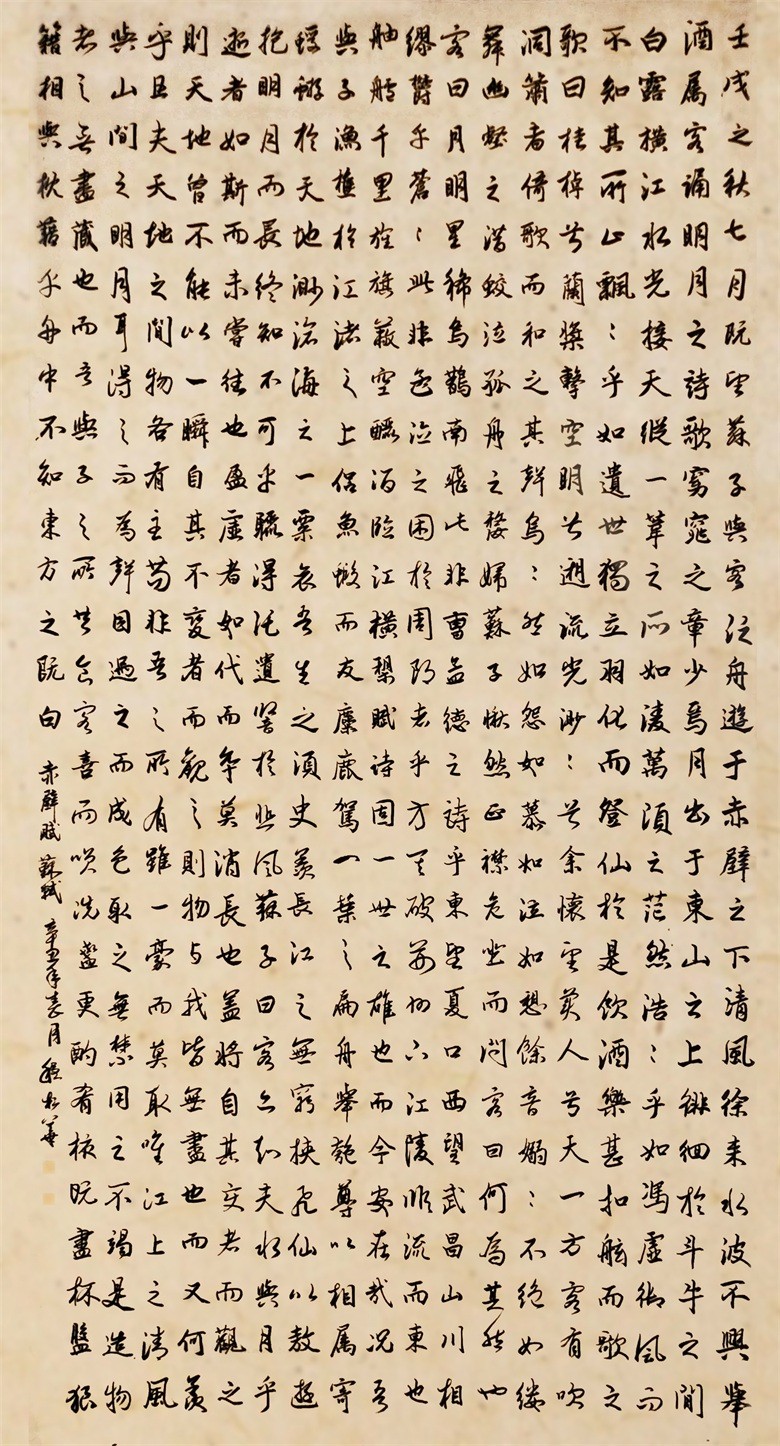 壬戌之秋七月既望蘇子與客泛舟遊于赤壁之下清風徐来水波不興舉
酒属客誦明月之詩歌窈窕之章少焉月出于東山之上徘徊於斗牛之間
白露橫江水光接天縱一葦之所如淩萬頃之茫然浩〻乎如馮虛御風而
不知其所止飄〻乎如遺世獨立羽化而登仙於是飲酒樂甚扣舷而歌之
歌曰桂棹兮蘭槳擊空明兮遡流光渺〻兮余懷望美人兮天一方客有吹
洞簫者倚歌而和之其聲烏〻然如怨如慕如泣如愬餘音嫋〻不絕如縷
舞幽壑之潛蛟泣孤舟之嫠婦蘇子愀然正襟危坐而問客曰何為其然也
客曰月明星稀烏鵲南飛此非曹孟德之詩乎東望夏口西望武昌山川相
繆鬱乎蒼〻此非孟德之困於周郎者乎方其破荊州下江陵順流而東也
舳艫千里旌旗蔽空釃酒臨江橫槊賦詩固一世之雄也而今安在哉況吾
與子漁樵於江渚之上侶魚蝦而友麋鹿駕一葉之扁舟舉匏尊以相属寄
蜉蝣於天地渺滄海之一粟哀吾生之須臾羨長江之無窮挾飛仙以敖遊
抱明月而長終知不可乎驟得託遺響於悲風蘇子曰客亦知夫水與月乎
逝者如斯而未嘗往也盈虛者如代而卒莫消長也蓋將自其变者而觀之
則天地曾不能以一瞬自其不變者而觀之則物与我皆無盡也而又何羨
乎且夫天地之間物各有主苟非吾之所有雖一豪而莫取唯江上之清風
與山間之明月耳得之而為聲目遇之而成色取之無禁用之不竭是造物
者之無盡藏也而吾與子之所共食客喜而笑洗盞更酌肴核既盡杯盤狼
籍相與枕藉乎舟中不知東方之既白 赤壁賦 蘇軾 辛丑年月